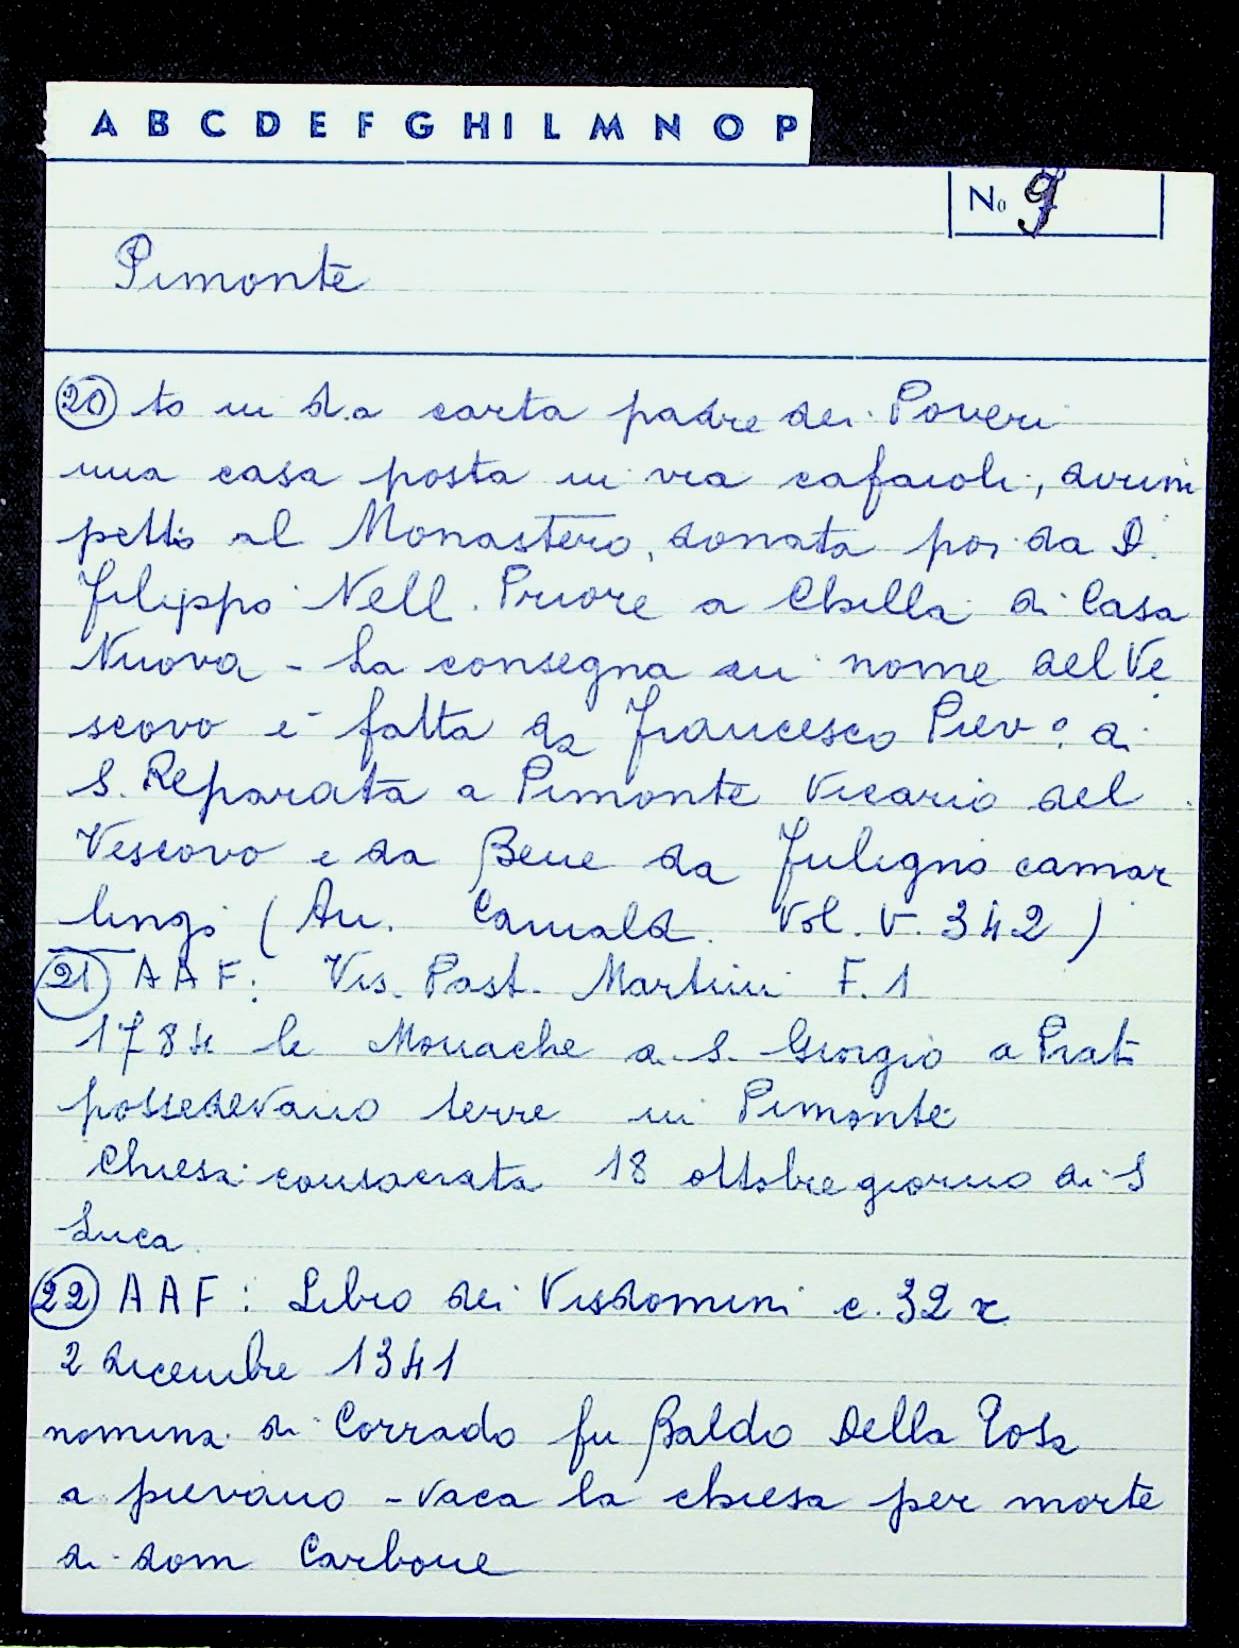 A B C D E F G H I L M N O P
No 9
Pimonte
20 to in d.a carta padre dei Poveri
una casa posta in via cafaioli, dirim
petto al Monastero, donata poi da D.
Filippo Nell. Priore a Chella di Casa
Nuova - La consegna in nome del Ve
scovo è fatta da Francesco Piev° di
S. Reparata a Pimonte Vicario del
Vescovo e da Bene da Fuligno camar
lingo (An. Camald. Vol. V. 342)
21 AAF: Vis. Past. Martini F. 1
1784 le Monache di S. Giorgio a Prato
possedevano terre in Pimonte
Chiesa consacrata 18 ottobre giorno di S
Luca
22 AAF: Libro dei Visdomini c. 32 r
2 dicembre 1341
nomina di Corrado fu Baldo Della Tosa
a pievano - vaca la chiesa per morte
di dom Carbone